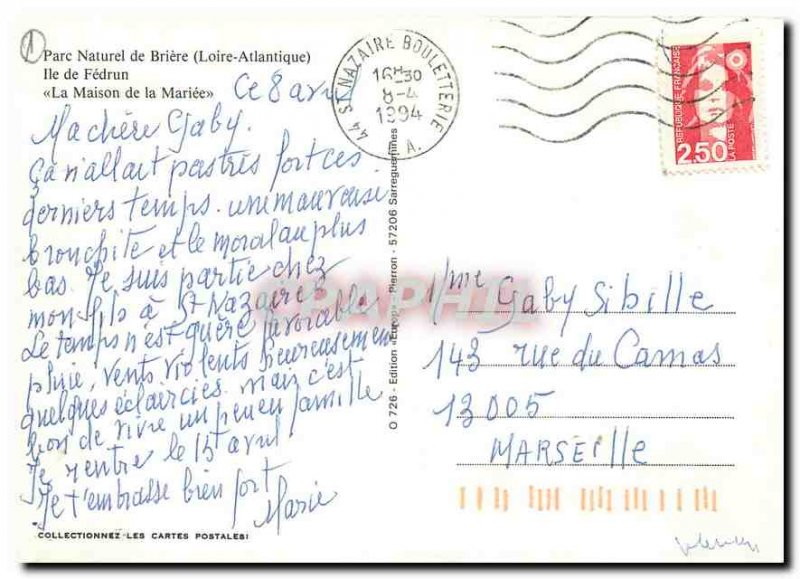 1
Parc Naturel de Brière (Loire-Atlantique)
Ile de Fédrun
«La Maison de la Mariée»
Ce 8 avril
Ma chère Gaby.
Ça n'allait pas très fort ces
derniers temps. une mauvaise
bronchite et le moral au plus
bas. Je suis partie chez
mon fils à St Nazaire
Le temps n'est guère favorable
pluie, vents violents heureusement
quelques éclaircies. mais c'est
bon de vivre un peu en famille
Je rentre le 15 avril
Je t'embrasse bien fort
Marie
COLLECTIONNEZ LES CARTES POSTALES!
44 ST NAZAIRE BOULETTERIE
16H30
8-4
1994
A.
O 726 - Edition «Europ» Pierron - 57206 Sarreguemines
REPUBLIQUE FRANÇAISE
2.50
LA POSTE
CPAPHIL
Mme Gaby Sibille
143 rue du Camas
13005
MARSEILLE